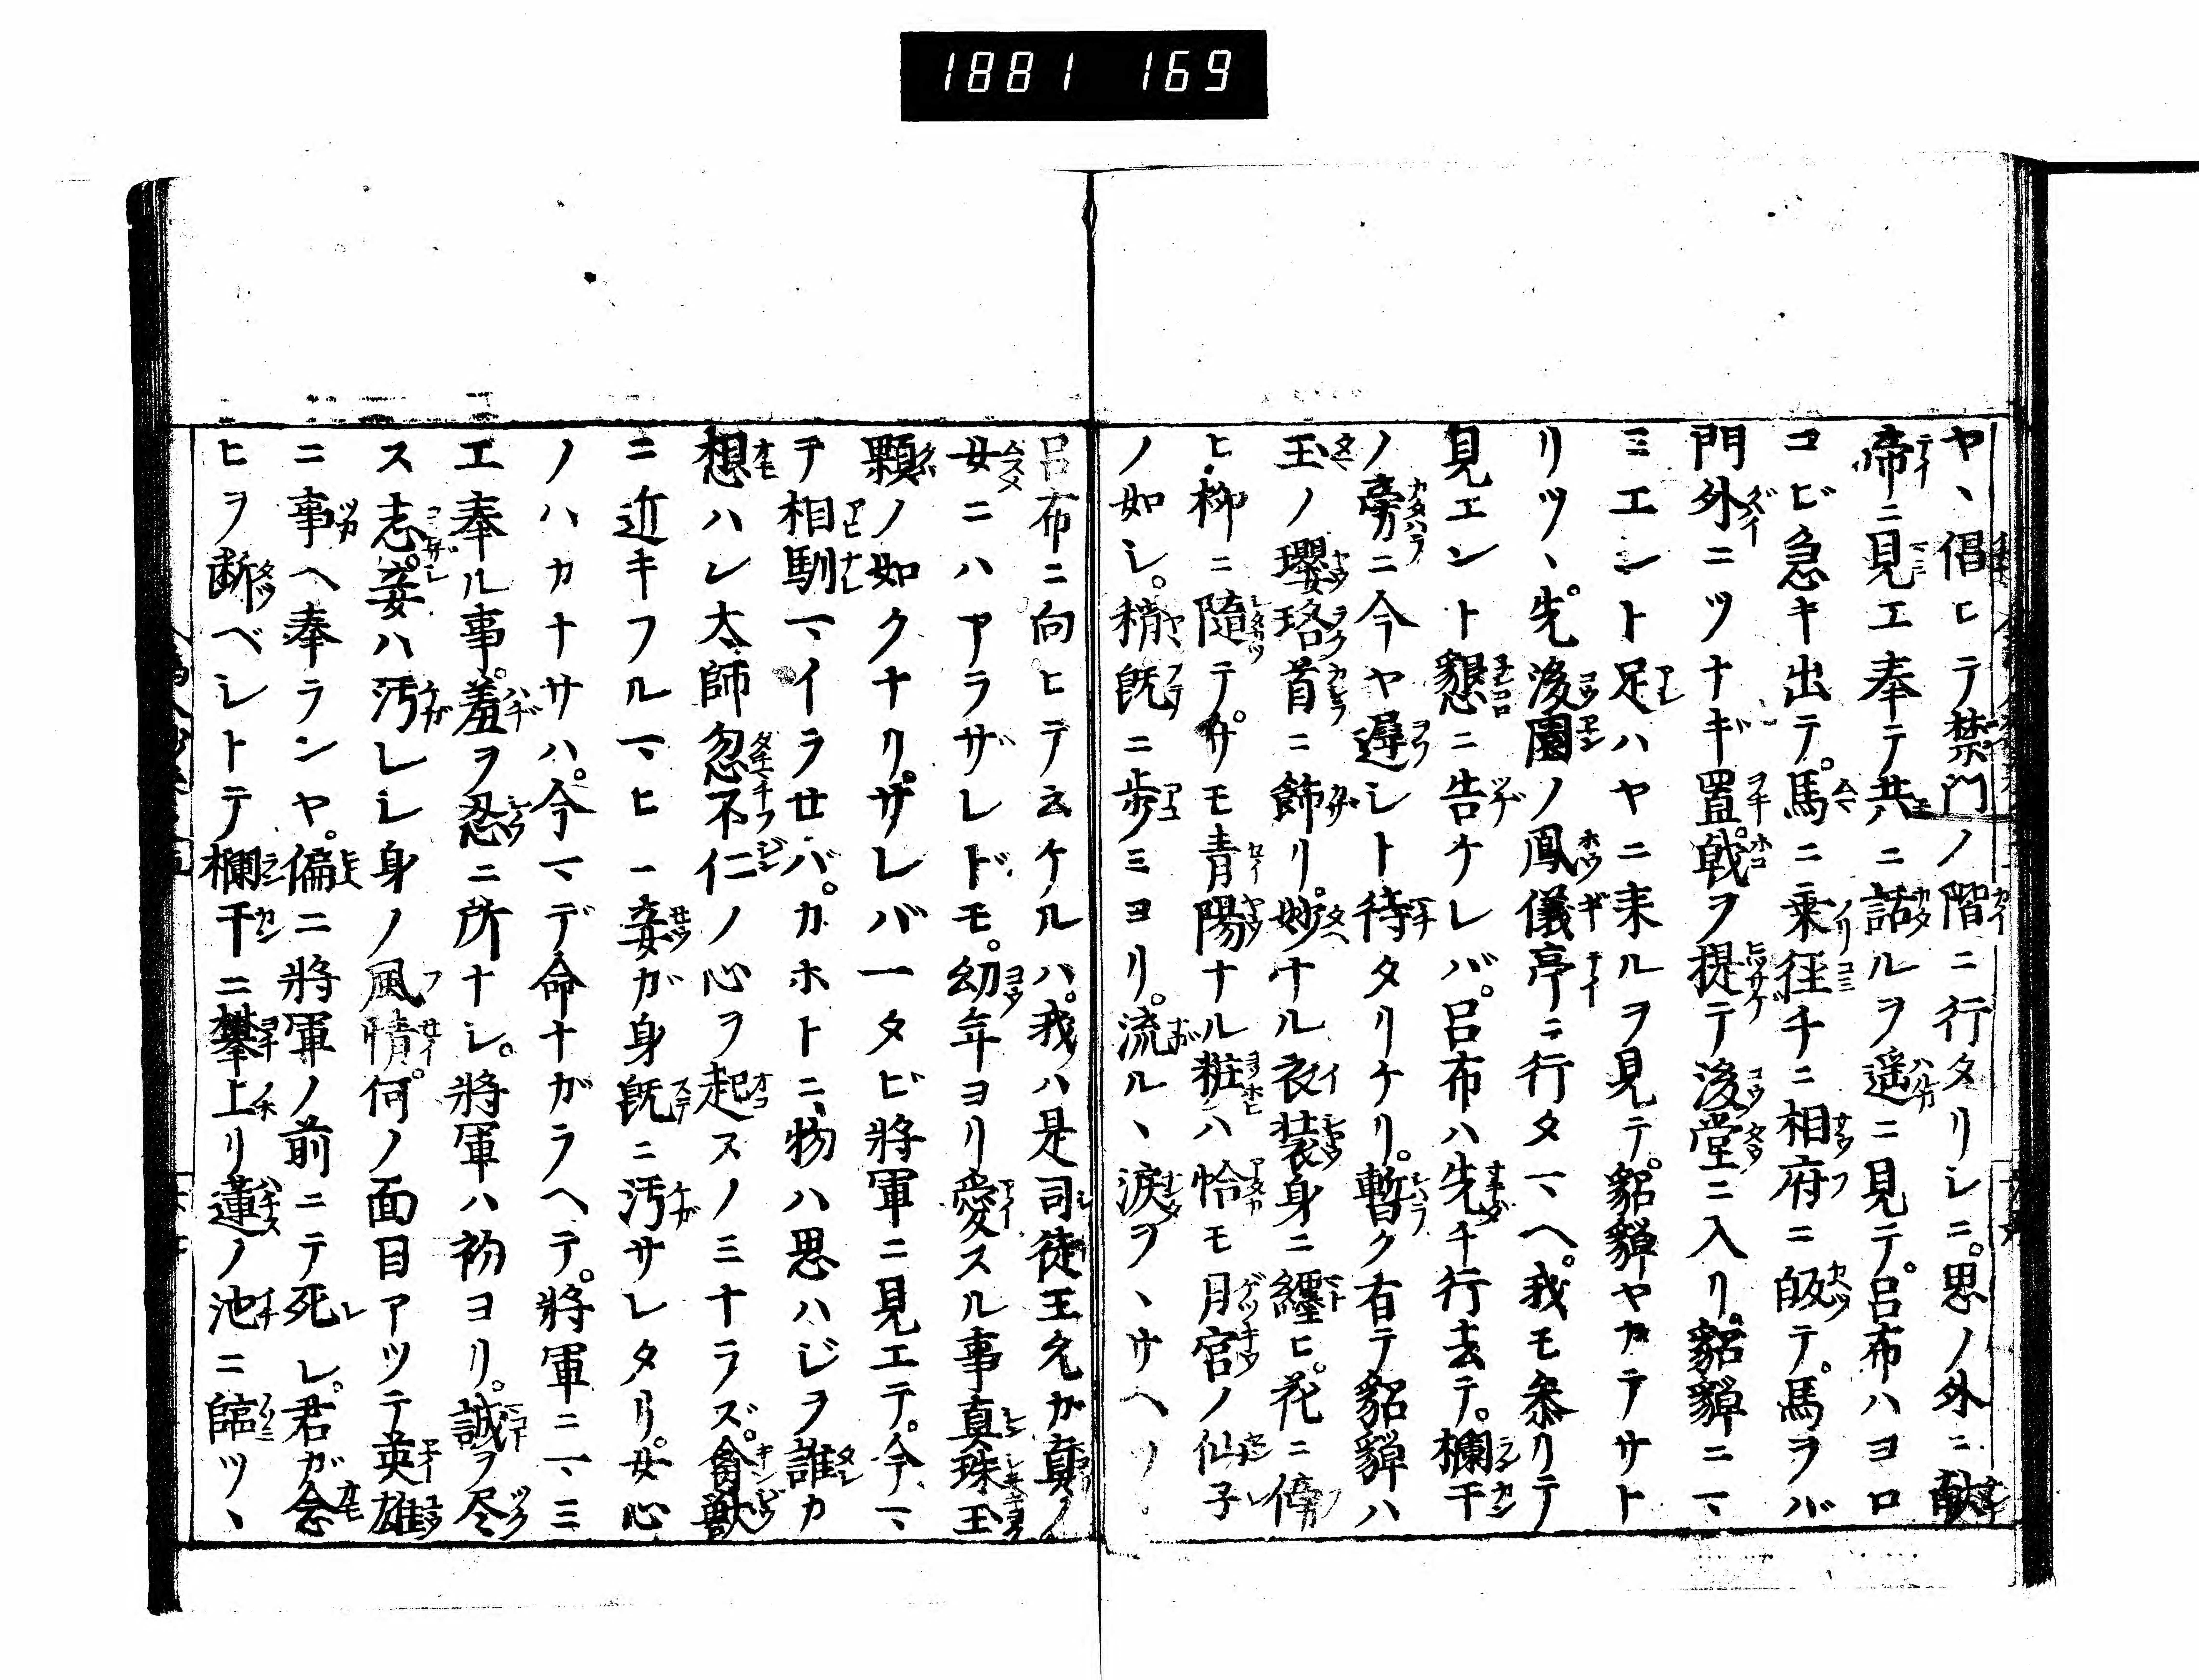 1881 169
ヤヽ倡ヒテ禁門ノ階ニ行タリシニ。思ノ外ニ献
帝ニ見エ奉テ共ニ話ルヲ遥ニ見テ。呂布ハヨロ
コビ急キ出テ。馬ニ乗径チニ相府ニ皈テ。馬ヲバ
門外ニツナギ置。戟ヲ提テ後堂ニ入リ。貂蟬ニマ
ミエント足ハヤニ来ルヲ見テ。貂蟬ヤカテサト
リツヽ。先後園ノ鳳儀亭ニ行タマヘ。我モ参リテ
見エント懇ニ告ケレバ。呂布ハ先チ行去テ。欄干
ノ旁ニ今ヤ遅シト待タリケリ。暫ク有テ貂蟬ハ
玉ノ瓔珞首ニ飾リ。妙ナル衣装身ニ纒ヒ。花ニ傍
ヒ柳ニ随テ。サモ青陽ナル粧ハ恰モ月宮ノ仙子
ノ如シ。稍既ニ歩ミヨリ。流ルヽ涙ヲヽサヘツ
呂布ニ向ヒテ云ケルハ。我ハ是司徒王允ガ真ノ
女ニハアラザレドモ。幼年ヨリ愛スル事真珠玉
顆ノ如クナリ。サレバ一タビ將軍ニ見エテ。今マ
テ相馴マイラセバ。カホトニ物ハ思ハジヲ誰カ
想ハン太師忽不仁ノ心ヲ起スノミナラズ。禽獣
ニ近キフルマヒ一妾ガ身既ニ汚サレタリ。女心
ノハカナサハ。今マデ命ナガラヘテ。將軍ニマミ
エ奉ル事。羞ヲ忍ニ所ナシ。將軍ハ初ヨリ。誠ヲ尽
ス志。妾ハ汚レシ身ノ風情。何ノ面目アツテ英雄
ニ事ヘ奉ランヤ。偏ニ將軍ノ前ニテ死シ。君ガ念
ヒヲ断ベシトテ欄干ニ攀上リ蓮ノ池ニ臨ツヽ